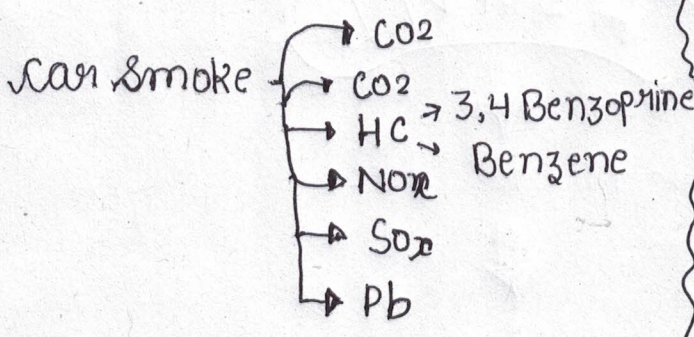 CO2
Car Smoke CO2
HC → 3,4 Benzoprine
→ Benzene
NOx
SOx
Pb